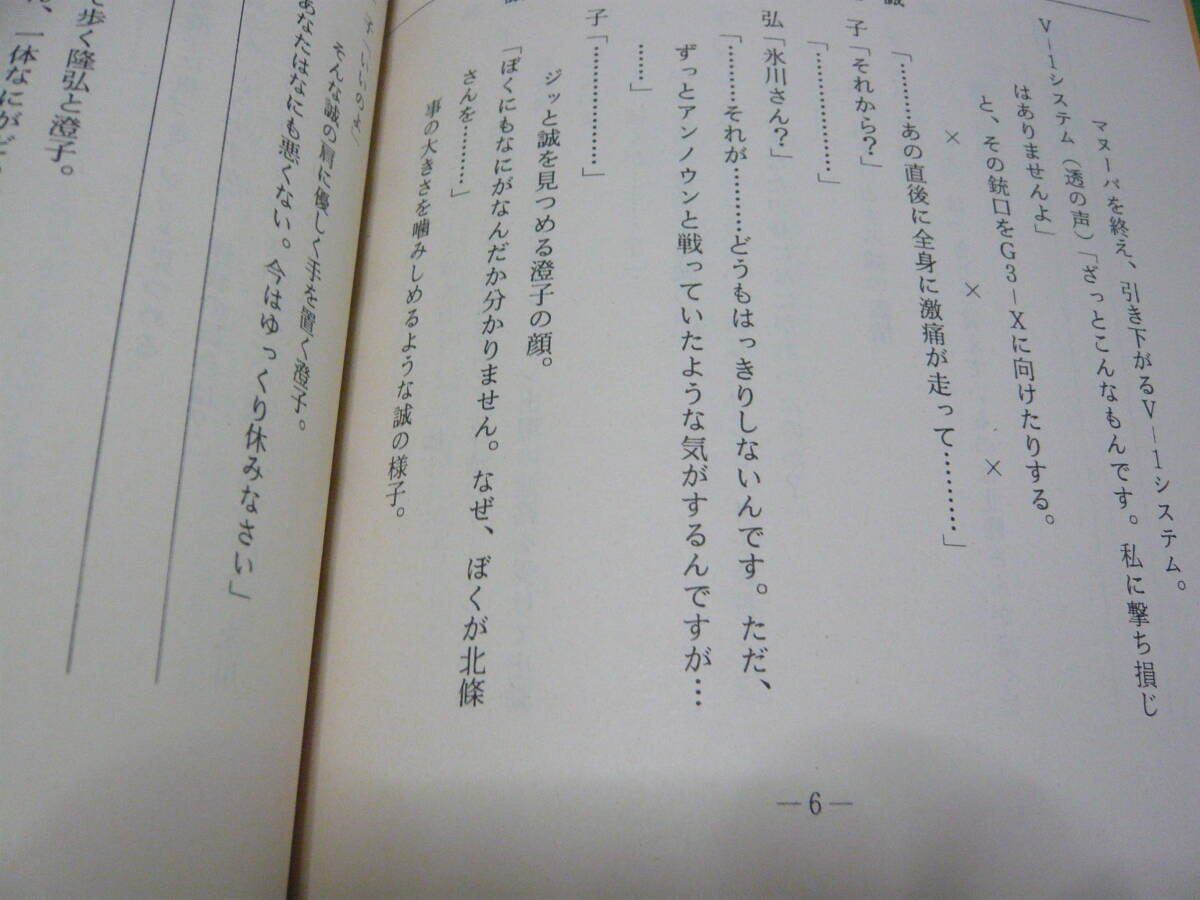 マヌーバを終え、引き下がるV－1システム。
V－1システム（透の声）「ざっとこんなもんです。私に撃ち損じ
はありませんよ」
と、その銃口をG3－Xに向けたりする。
× × ×
「………あの直後に全身に激痛が走って………」
子「それから？」
「……………」
弘「氷川さん？」
「………それが………どうもはっきりしないんです。ただ、
ずっとアンノウンと戦っていたような気がするんですが…
……」
子「……………」
ジッと誠を見つめる澄子の顔。
「ぼくにもなにがなんだか分かりません。なぜ、ぼくが北條
さんを………」
事の大きさを噛みしめるような誠の様子。
－6－
子「いいのよ」
そんな誠の肩に優しく手を置く澄子。
あなたはなにも悪くない。今はゆっくり休みなさい」
て歩く隆弘と澄子。
一体なにがど